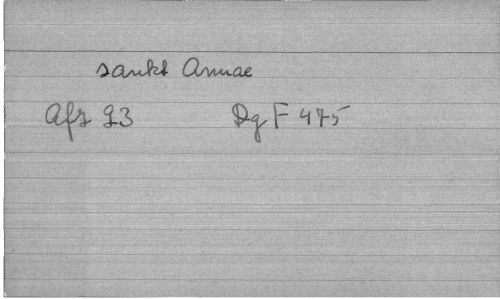 sankt Annae
Afs 93 DgF 475